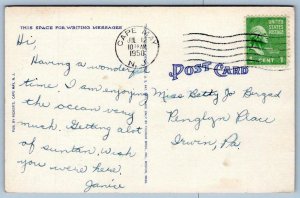 THIS SPACE FOR WRITING MESSAGES
Hi,
Having a wonderful
time. I am enjoying
the ocean very
much. Getting alot
of suntan. Wish
you were here.
Janice
CAPE MAY
JUL 12
10 AM
1950
N.J.
UNITED STATES POSTAGE
1 CENT 1
POST CARD
Miss Betty Jo
Penglyn Place
Irwin, Pa.